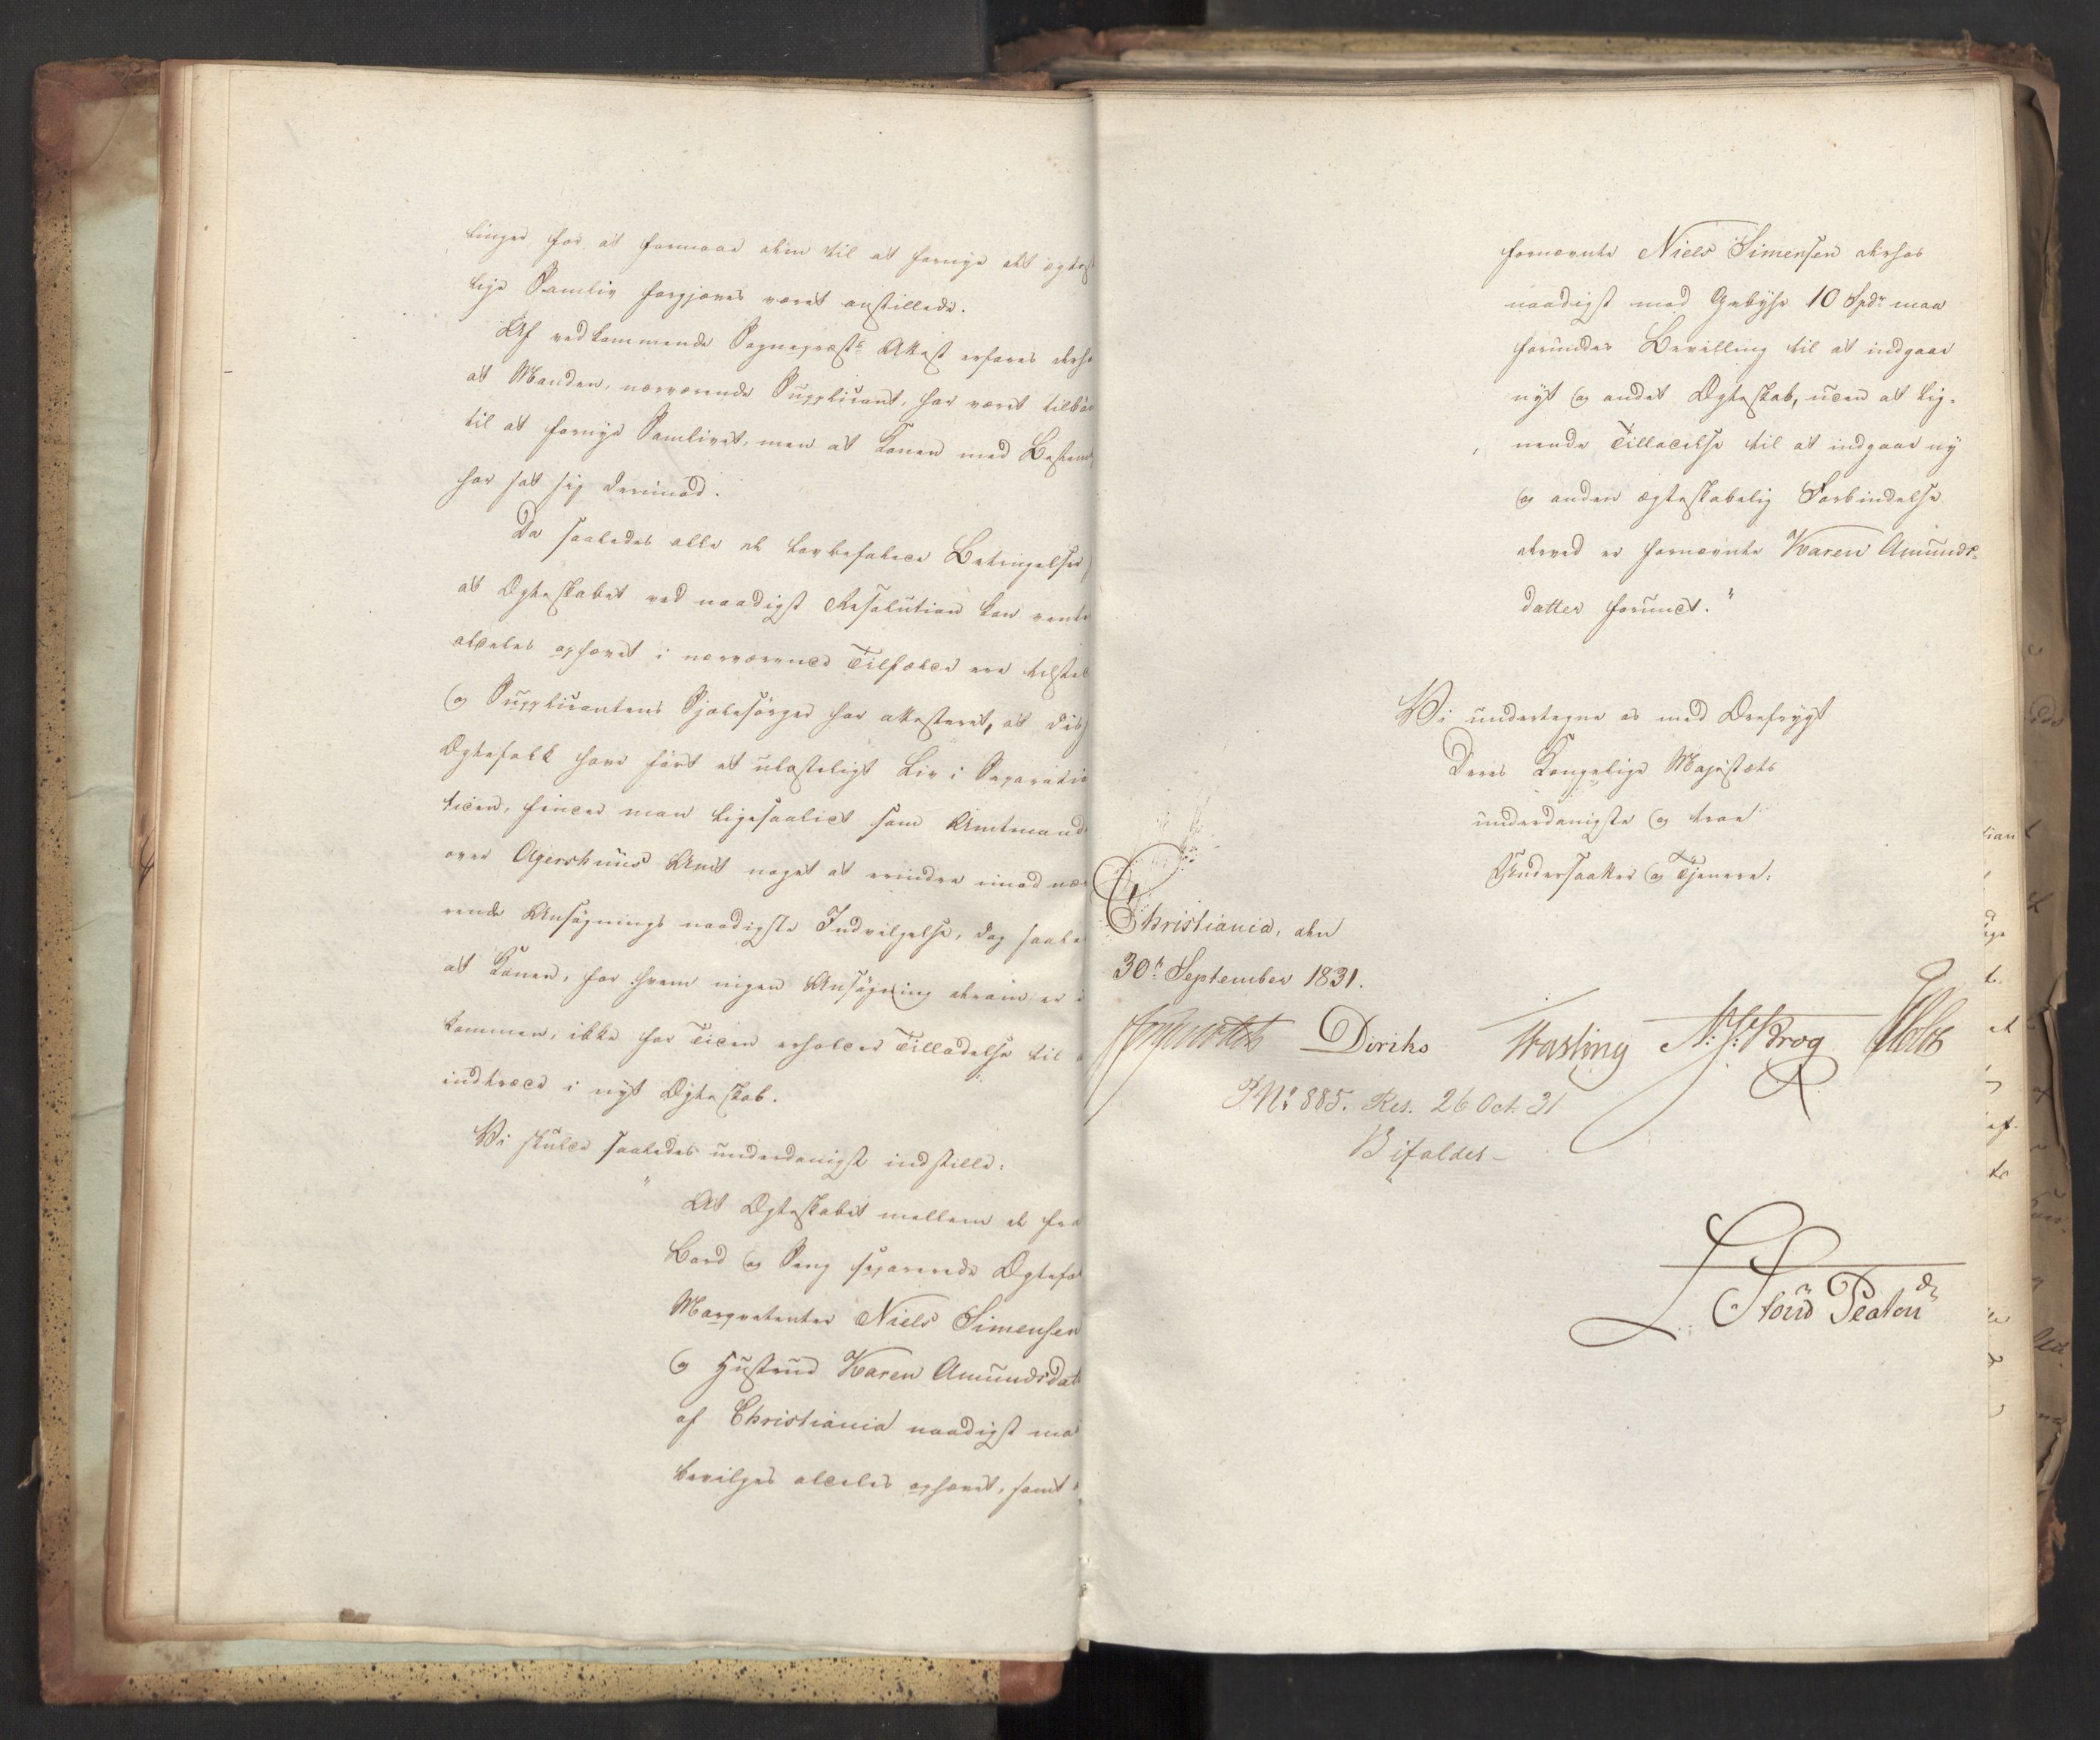 linger for at formaae dem til at fornye det ægtesk
lige Samliv forgjæves været anstillede.
Af vedkommende Sognepræsts Attest erfares derho
at Manden, nærværende Supplicant, har været tilböi
til at fornye Samlivet, men at Konen med Bestemt
har sat sig derimod.
Da saaledes alle de lovbefalede Betingelser
at Ægteskabet ved naadigst Resolution kan vente
aldeles ophævet i nærværende Tilfælde ere tilsted
og Supplicantens Sjælesörger har attesteret, at disse
Ægtefolk have fört et ulasteligt Liv i Separatio
tiden, finder man ligesaalidt som Amtmand
over Agershuus Amt noget at erindre imod nær
rende Ansögnings naadigste Indvilgelse, dog saale
at Konen, for hvem ingen Ansögning derom er i
kommen, ikke for Tiden erholder Tilladelse til a
indtræde i nyt Ægteskab.
Vi skulde saaledes underdanigst indstille:
"At Ægteskabet mellem de fra
Bord og Seng separerede Ægtefol
Marqvetenter Niels Simensen
og Hustrue Karen Amundsdat
af Christiania naadigst maa
bevilges aldeles ophævet, samt
fornævnte Niels Simensen derhos
naadigst mod Gebyhr 10 Spdr maa
forundes Bevilling til at indgaae
nyt og andet Ægteskab, uden at lig-
nende Tilladelse til at indgaae ny
og anden ægteskabelig Forbindelse
derved er fornævnte Karen Amunds-
datter forundt."
Vi undertegne os med Ærefrygt
Deres Kongelige Majestæts
underdanigste og troe
Undersaatter og Tjenere.
Christiania, den
30te September 1831.
Diriks Fasting Krog
P No 885. Res. 26 Oct. 31
Bifaldes